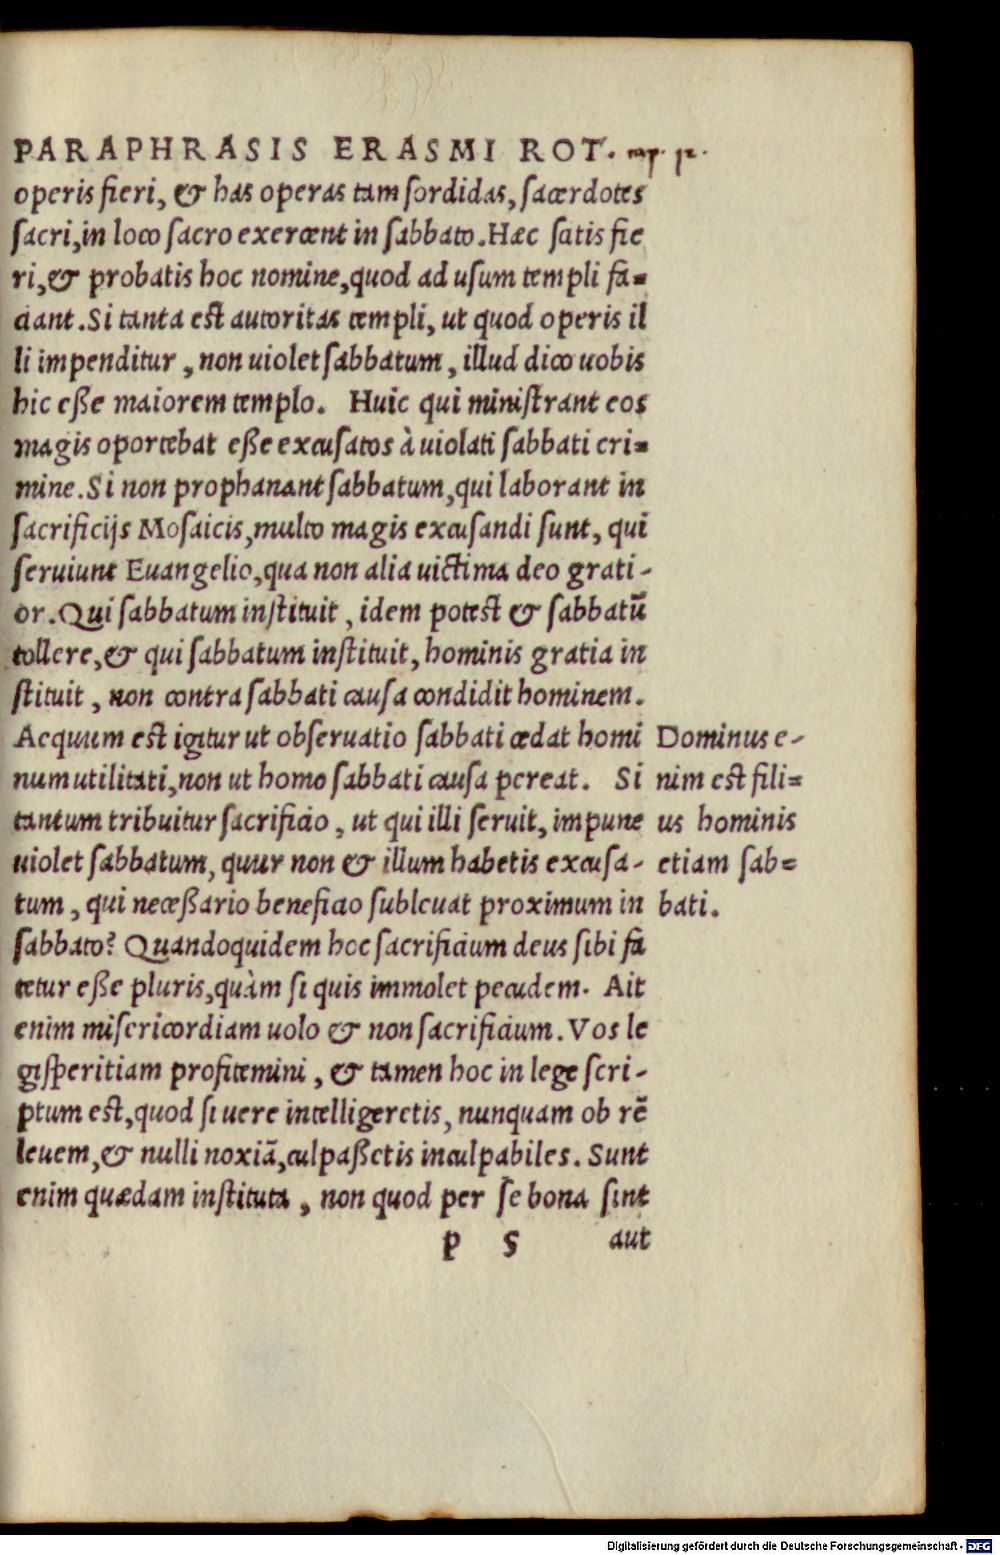 PARAPHRASIS ERASMI ROT.
operis fieri, & has operas tam sordidas, sacerdotes
sacri, in loco sacro exercent in sabbato. Hæc satis fie
ri, & probatis hoc nomine, quod ad usum templi fa=
ciant. Si tanta est autoritas templi, ut quod operis il
li impenditur, non uiolet sabbatum, illud dico uobis
hic eße maiorem templo. Huic qui ministrant eos
magis oportebat eße excusatos à uiolati sabbati cri=
mine. Si non prophanant sabbatum, qui laborant in
sacrificijs Mosaicis, multo magis excusandi sunt, qui
seruiunt Euangelio, qua non alia uictima deo grati-
or. Qui sabbatum instituit, idem potest & sabbatū
tollere, & qui sabbatum instituit, hominis gratia in
stituit, non contra sabbati causa condidit hominem.
Aequum est igitur ut obseruatio sabbati cedat homi
num utilitati, non ut homo sabbati causa pereat. Si
tantum tribuitur sacrificio, ut qui illi seruit, impune
uiolet sabbatum, quur non & illum habetis excusa-
tum, qui neceßario beneficio subleuat proximum in
sabbato? Quandoquidem hoc sacrificium deus sibi fa
tetur eße pluris, quàm si quis immolet pecudem. Ait
enim misericordiam uolo & non sacrificium. Vos le
gisperitiam profitemini, & tamen hoc in lege scri-
ptum est, quod si uere intelligeretis, nunquam ob rē
leuem, & nulli noxiā, culpaßetis inculpabiles. Sunt
enim quædam instituta, non quod per se bona sint
p 5 aut
Dominus e-
nim est fili=
us hominis
etiam sab=
bati.
Digitalisierung gefördert durch die Deutsche Forschungsgemeinschaft - DFG